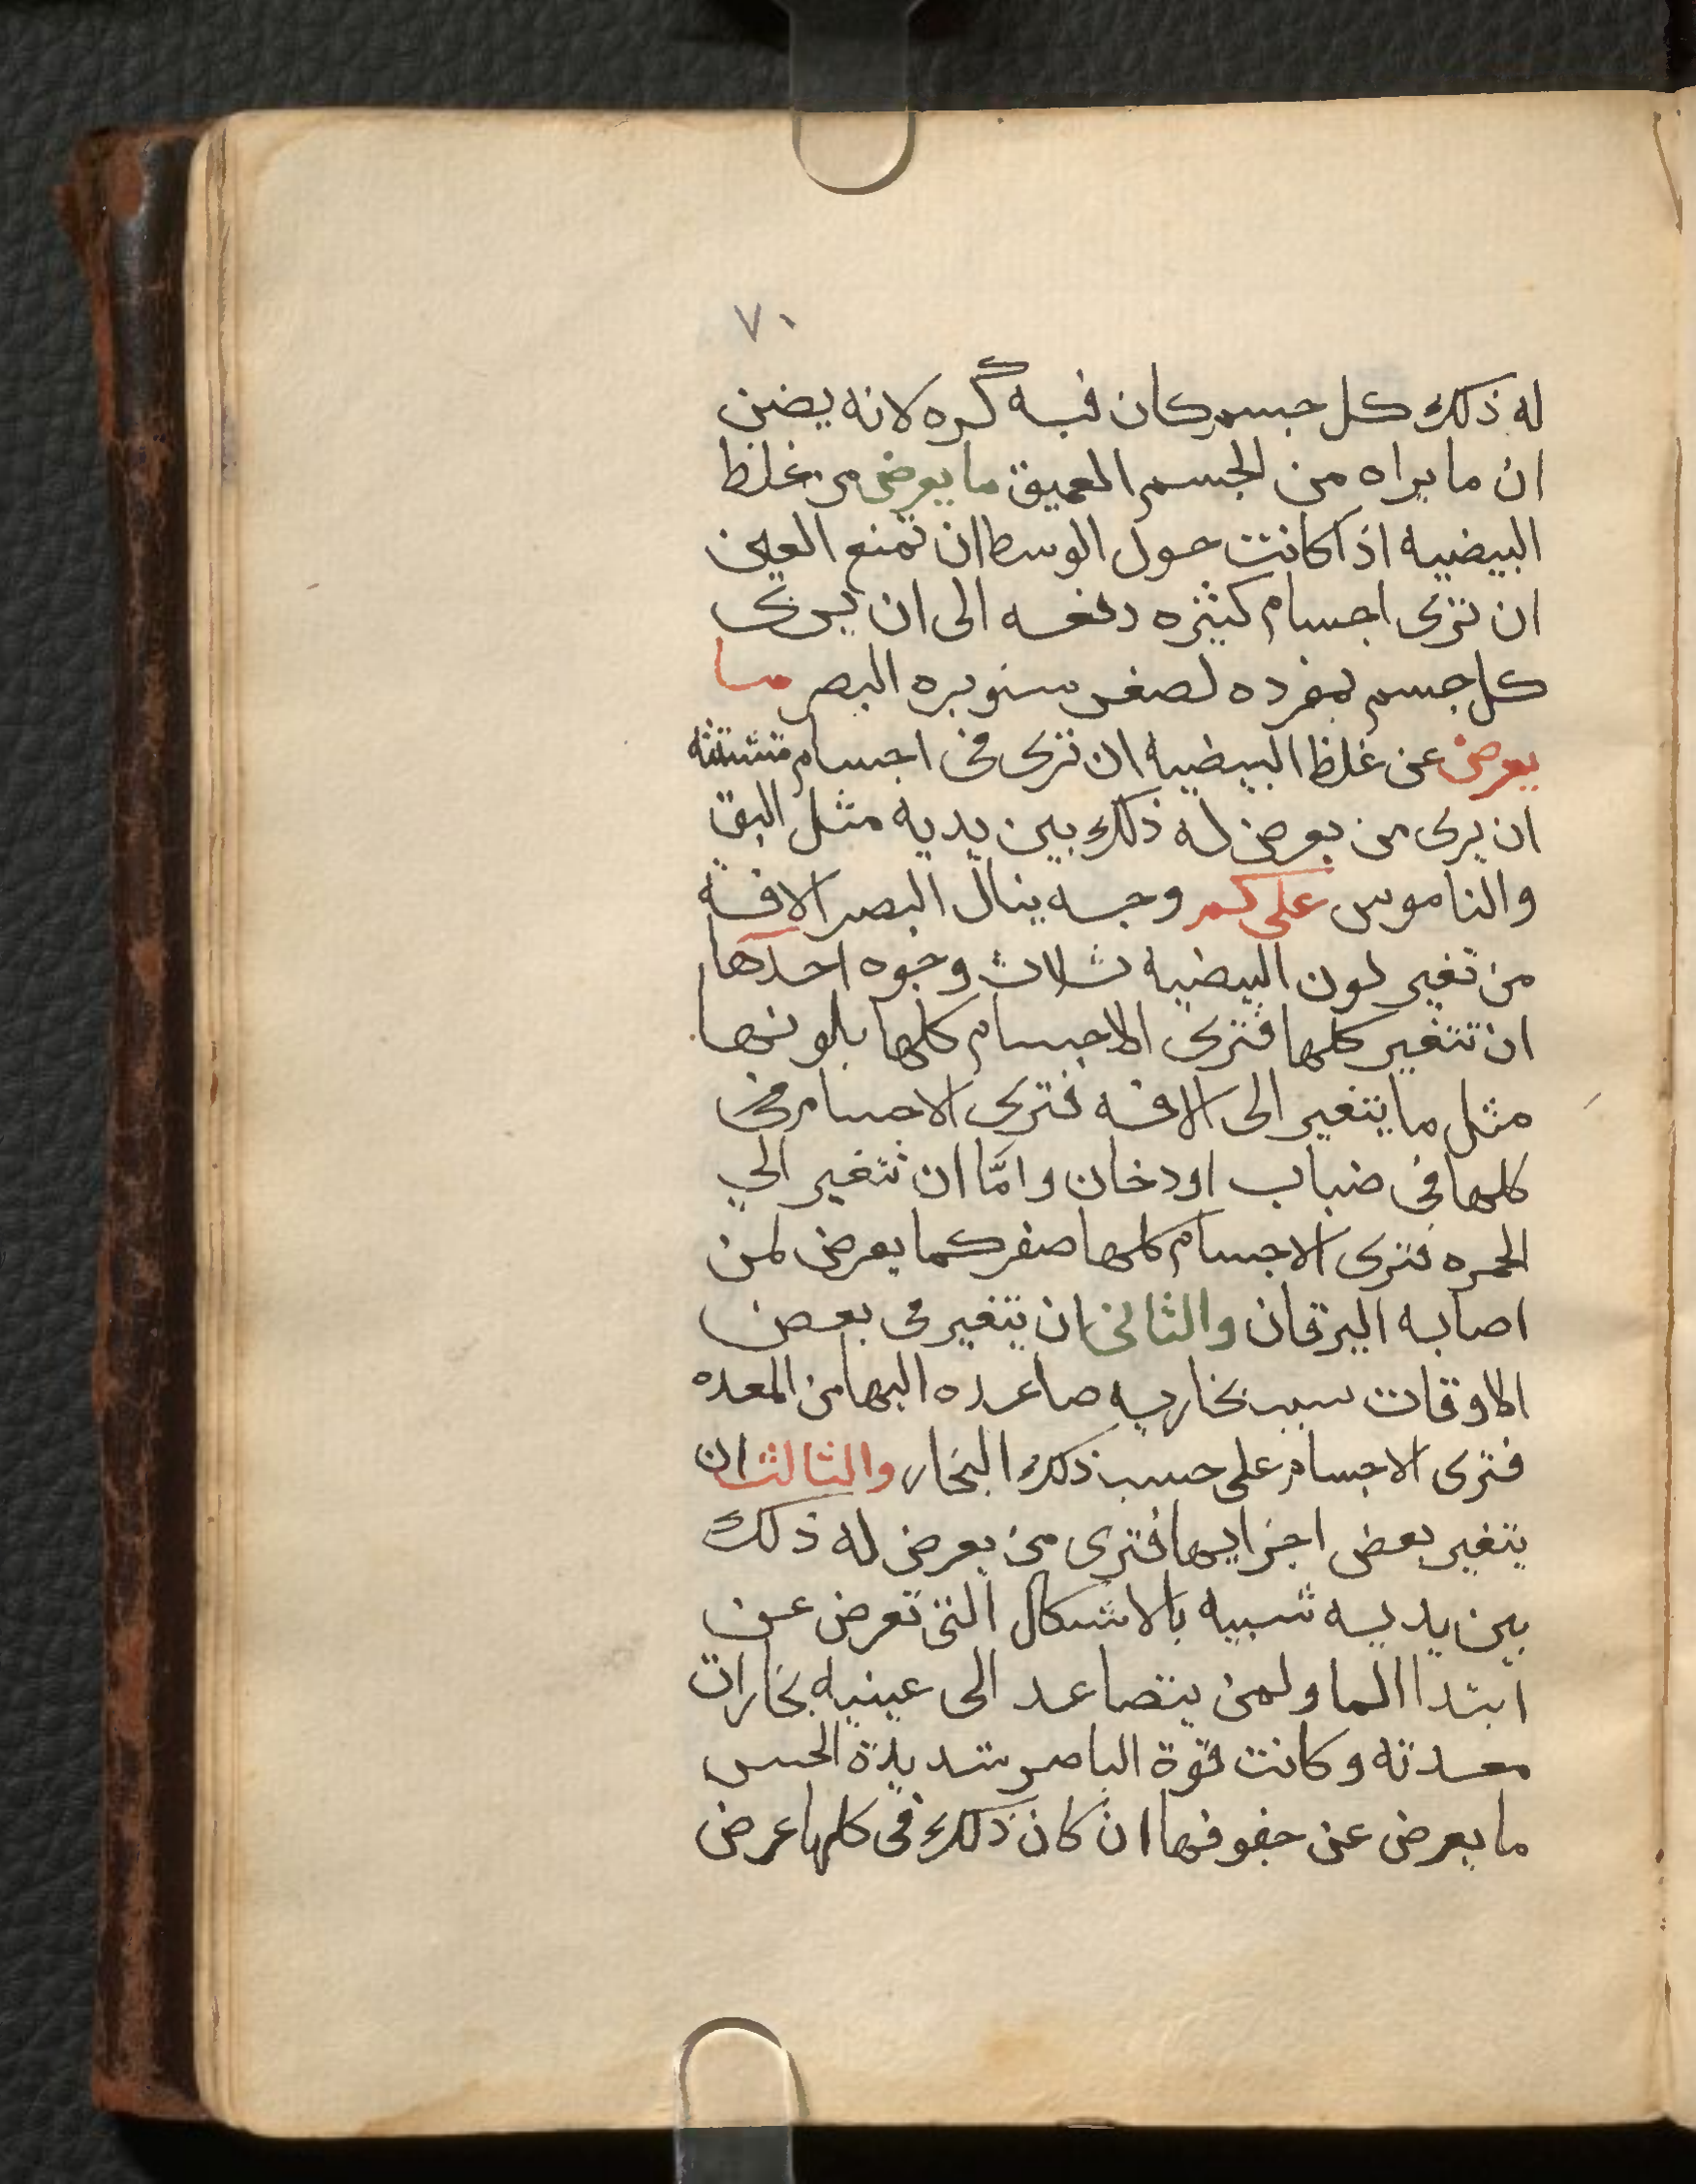 ٧٠
له ذلك كل جسم كان فيه كره لانه يضن
ان ما يراه من الجسم العميق ما يعرض من غلظ
البيضيه اذا كانت حول الوسط ان تمنع العين
ان ترى اجسام كثيره دفعه الى ان يرى
كل جسم بمفرده لصغر سنوبره البصر ما
يعرض عن غلظ البيضيه ان ترى في اجسام متشتته
ان يرى من يعرض له ذلك بين يديه مثل البق
والناموس على كم وجه ينال البصر الافه
من تغير لون البيضيه ثلاث وجوه احدها
ان تتغير كلها فترى الاجسام كلها بلونها
مثل ما يتغير الى الافه فترى الاجسام في
كلها في ضباب او دخان وامّا ان تتغير الي
الحمره فترى الاجسام كلها صفر كما يعرض لمن
اصابه اليرقان والثاني ان يتغير في بعض
الاوقات سبب بخاريه صاعده اليها من المعده
فترى الاجسام على حسب ذلك البخار والثالث ان
يتغير بعض اجزايها فترى من يعرض له ذلك
بين يديه شبيه بالاشكال التي تعرض عن
ابتدا الما ولمن يتصاعد الى عينيه بخارات
معدته وكانت قوة الباصر شديدة الحس
ما يعرض عن جفوفها ان كان ذلك في كلها عرض